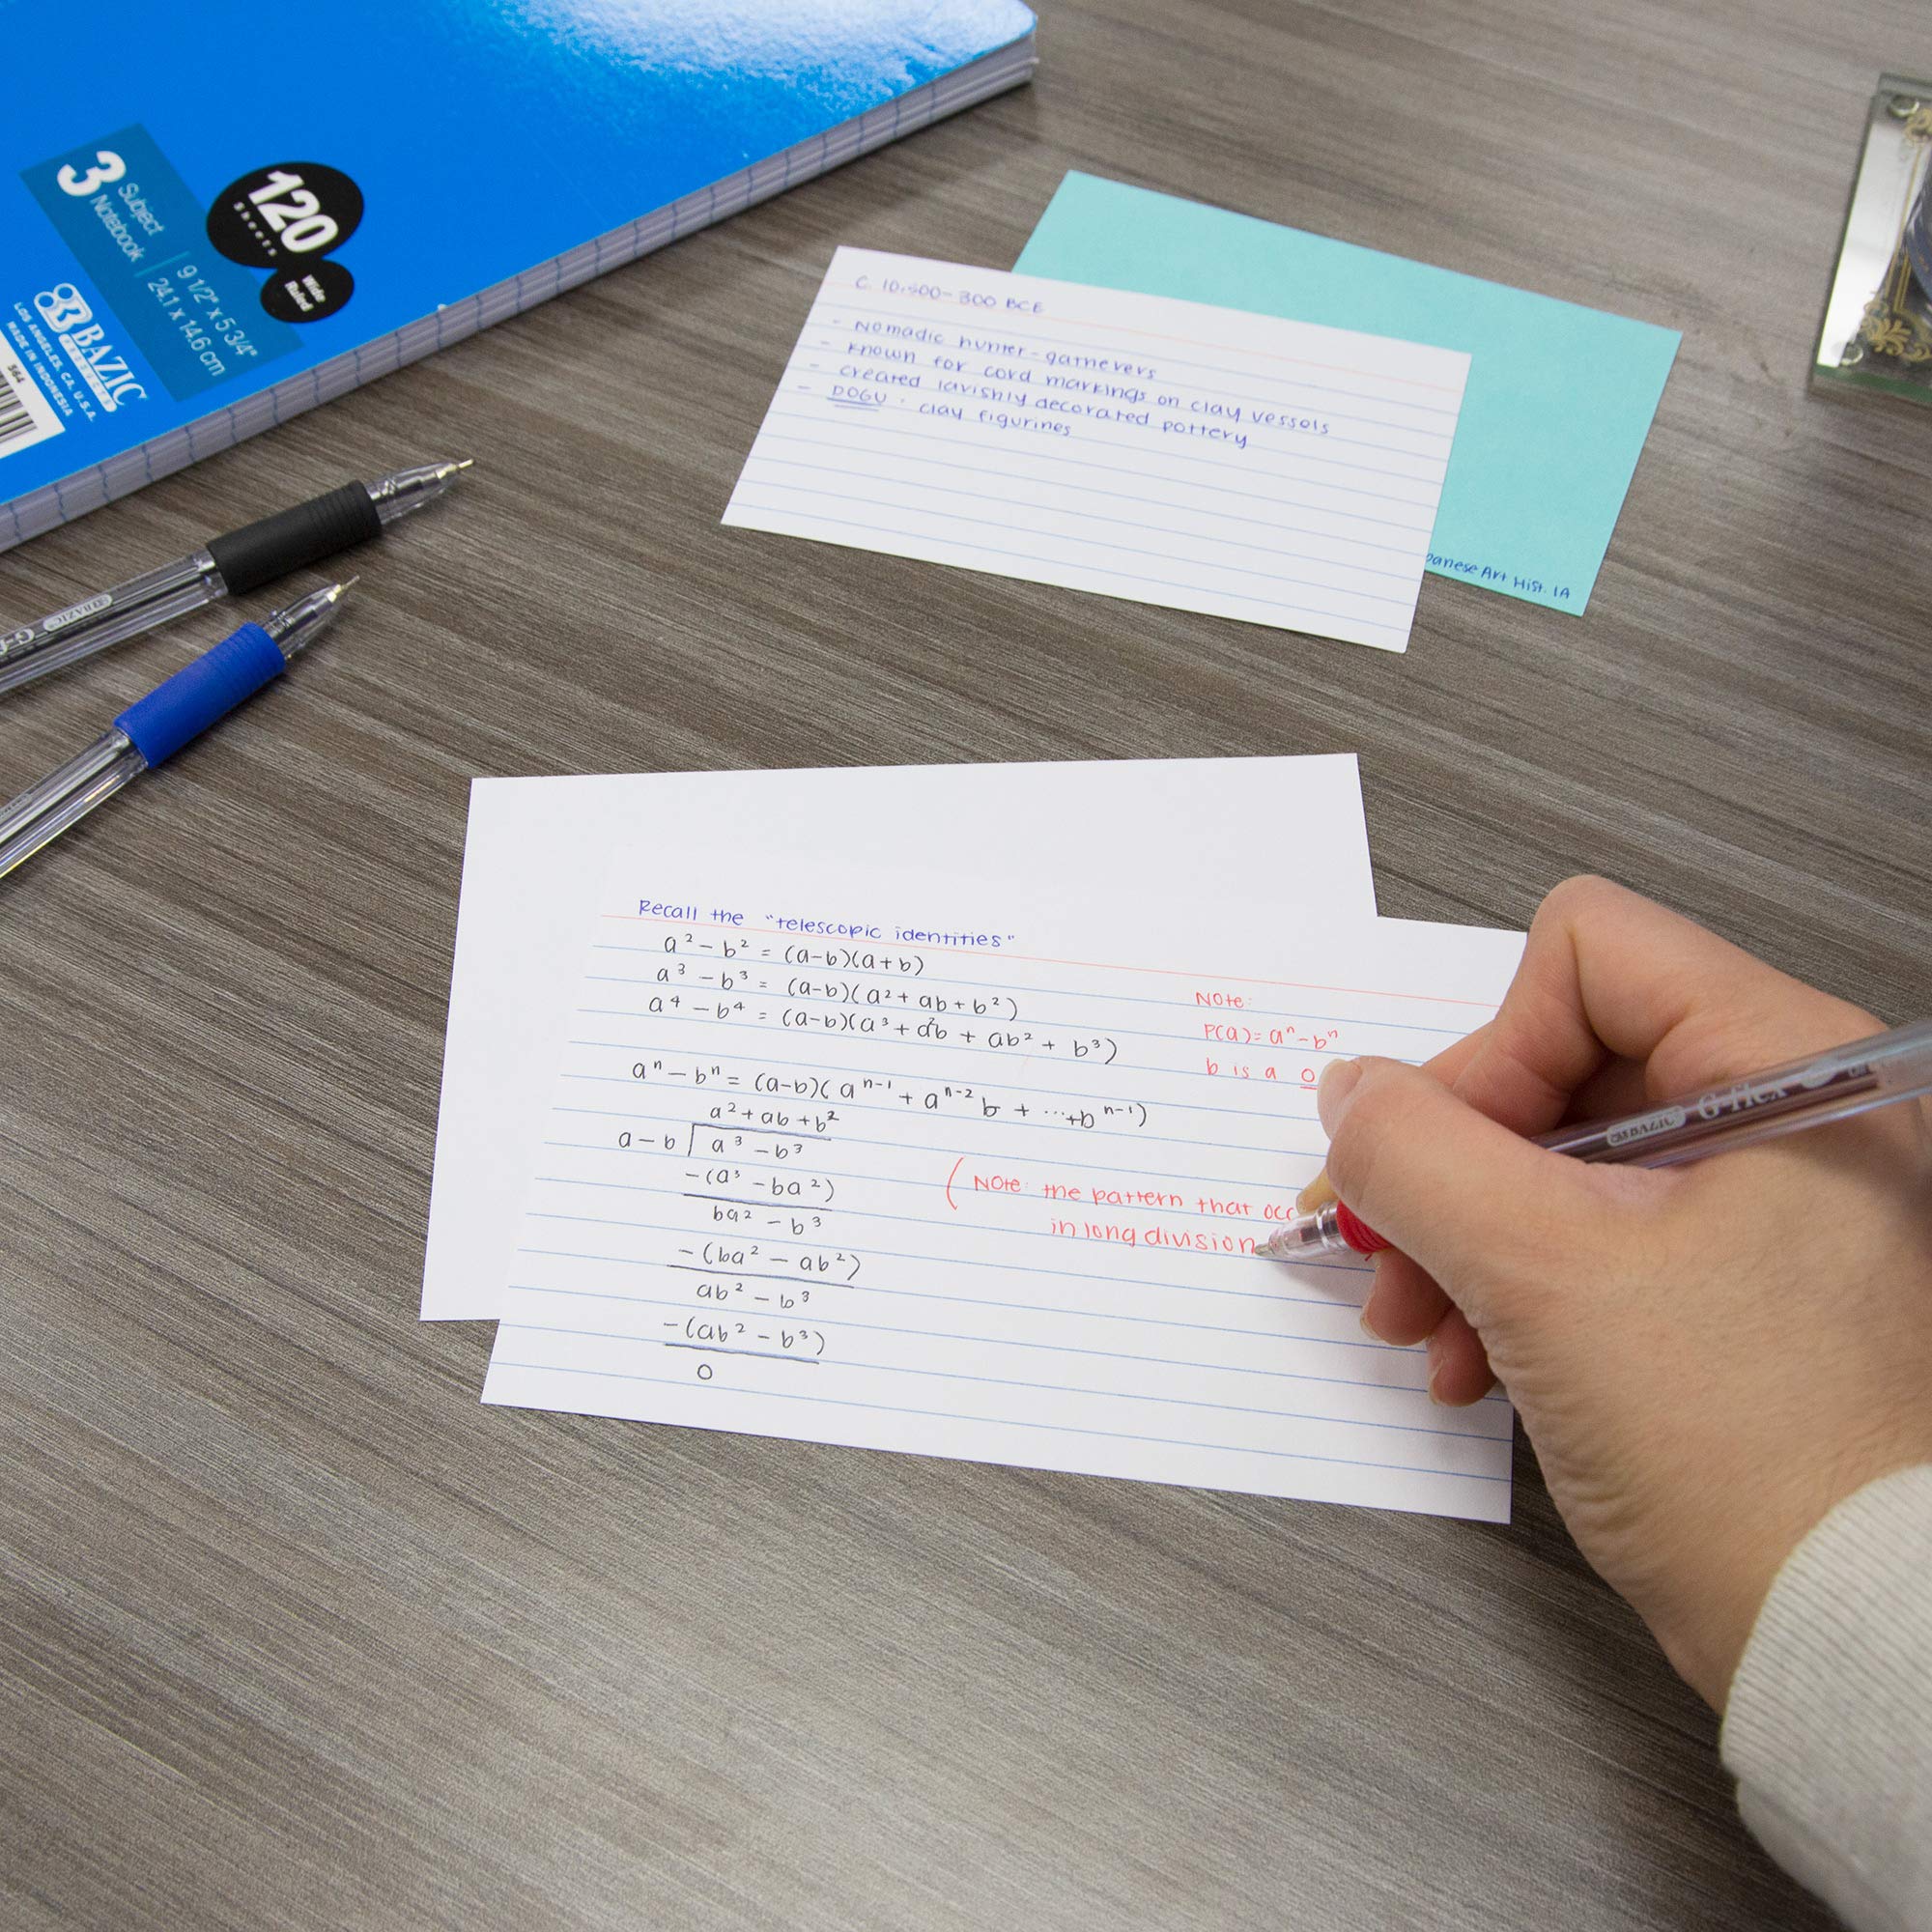 3 Subject
Notebook
120
Sheets
Wide
Ruled
9 1/2" x 5 3/4"
24.1 x 14.6 cm
BAZIC
PRODUCTS
LOS ANGELES, CA. U.S.A.
MADE IN INDONESIA
564
BAZIC
C. 10,500-300 BCE
- Nomadic hunter-gatherers
- known for cord markings on clay vessels
- created lavishly decorated pottery
- DOGU : clay figurines
panese Art Hist. 1A
Recall the "telescopic identities"
a² - b² = (a-b)(a+b)
a³ - b³ = (a-b)(a² + ab + b²)
a⁴ - b⁴ = (a-b)(a³ + a²b + ab² + b³)
Note:
P(a) = aⁿ - bⁿ
b is a 0
aⁿ - bⁿ = (a-b)(aⁿ⁻¹ + aⁿ⁻² b + ... + bⁿ⁻¹)
a² + ab + b²
a - b √ a³ - b³
-(a³ - ba²)
ba² - b³
-(ba² - ab²)
ab² - b³
-(ab² - b³)
0
(Note: the pattern that occ
in long division
BAZIC G-Flex